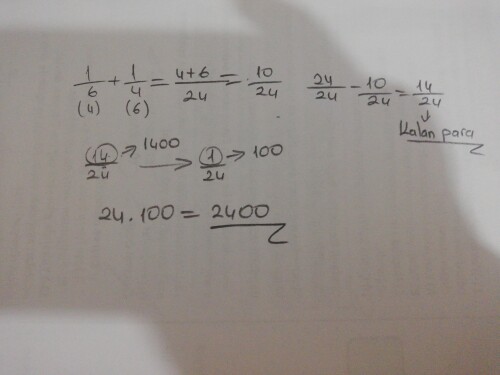 1/6 + 1/4 = 4+6/24 = 10/24
(4) (6)
24/24 - 10/24 = 14/24
↓
Kalan para
14/24 → 1400 → 1/24 → 100
24.100 = 2400